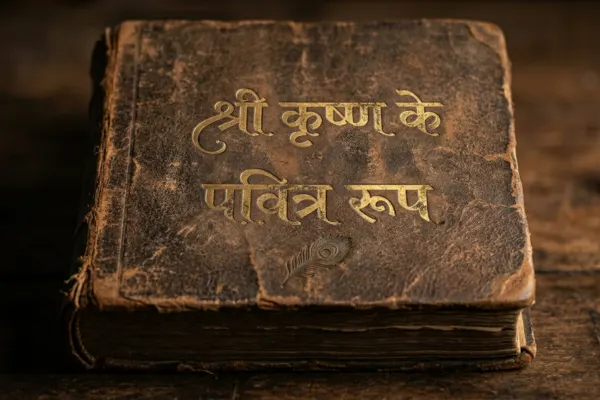 श्री कृष्ण के
पवित्र रूप